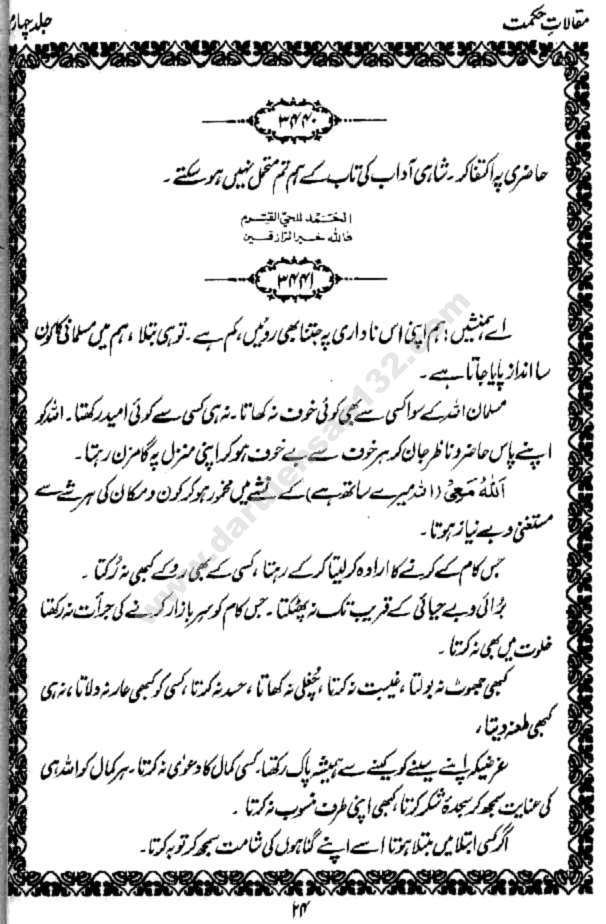 مقالاتِ حکمت
جلد چہار
۳۴۴۰
حاضری پہ اکتفا کر۔ شاہی آداب کی تاب کے ہم تم متحمل نہیں ہو سکتے۔
الحَمْد للحي القيّوم
فالله خير الرازقين
۳۴۴۱
اے ہمنشیں! ہم اپنی اس ناداری پہ جتنا بھی روئیں، کم ہے۔ تو ہی بتلا، ہم میں مسلمانی کا کون
سا انداز پایا جاتا ہے۔
مسلمان اللہ کے سوا کسی سے بھی کوئی خوف نہ کھاتا۔ نہ ہی کسی سے کوئی امید رکھتا۔ اللہ کو
اپنے پاس حاضر و ناظر جان کر ہر خوف سے بے خوف ہو کر اپنی منزل پہ گامزن رہتا۔
اَللّٰهُ مَعِیْ (اللہ میرے ساتھ ہے) کے نشے میں مخمور ہو کر کون و مکان کی ہر شے سے
مستغنی و بے نیاز ہوتا۔
جس کام کے کرنے کا ارادہ کر لیتا کر کے رہتا، کسی کے بھی روکے کبھی نہ رُکتا۔
بُرائی و بے حیائی کے قریب تک نہ پھٹکتا۔ جس کام کو سرِ بازار کرنے کی جرأت نہ رکھتا
خلوت میں بھی نہ کرتا۔
کبھی جھوٹ نہ بولتا، غیبت نہ کرتا، چُغلی نہ کھاتا، حسد نہ کرتا، کسی کو کبھی عار نہ دلاتا، نہ ہی
کبھی طعنہ دیتا،
غرضیکہ اپنے سینے کو کینے سے ہمیشہ پاک رکھتا۔ کسی کمال کا دعوٰی نہ کرتا۔ ہر کمال کو اللہ ہی
کی عنایت سمجھ کر سجدۂ شکر کرتا، کبھی اپنی طرف منسوب نہ کرتا۔
اگر کسی ابتلا میں مبتلا ہوتا اسے اپنے گناہوں کی شامت سمجھ کر توبہ کرتا۔
۲۴